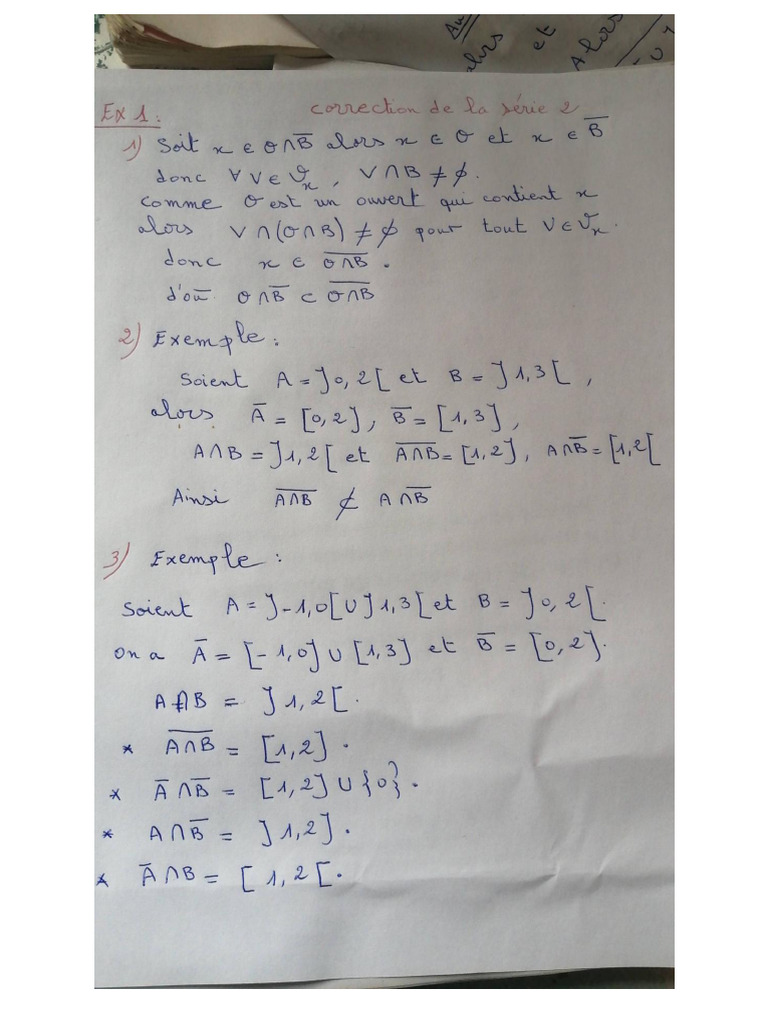 Au
alors
et
Alors
Ex 1: correction de la série 2
1) Soit x ∈ O∩B̅ alors x ∈ O et x ∈ B̅
donc ∀ V ∈ 𝒱ₓ, V∩B ≠ ∅.
comme O est un ouvert qui contient x
alors V∩(O∩B) ≠ ∅ pour tout V ∈ 𝒱ₓ.
donc x ∈ \overline{O∩B}.
d'où O∩B̅ ⊂ \overline{O∩B}
2) Exemple:
Soient A = ]0,2[ et B = ]1,3[,
alors A̅ = [0,2], B̅ = [1,3],
A∩B = ]1,2[ et \overline{A∩B} = [1,2], A∩B̅ = [1,2[
Ainsi \overline{A∩B} ⊄ A∩B̅
3) Exemple:
Soient A = ]-1,0[ ∪ ]1,3[ et B = ]0,2[.
on a A̅ = [-1,0] ∪ [1,3] et B̅ = [0,2].
A∩B = ]1,2[.
* \overline{A∩B} = [1,2].
* A̅∩B̅ = [1,2] ∪ {0}.
* A∩B̅ = ]1,2].
* A̅∩B = [1,2[.